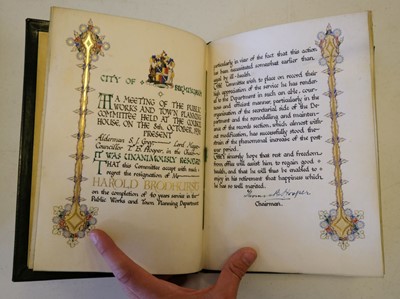 CITY OF BIRMINGHAM
AT A MEETING OF THE PUBLIC
WORKS AND TOWN PLANNING
COMMITTEE HELD AT THE COUNCIL
HOUSE, ON THE 8th OCTOBER,
PRESENT
Alderman S.J. Lord Mayor
Councillor in the Chair
IT WAS UNANIMOUSLY RESOLVED
that this Committee accept with much
regret the resignation of Mr
HAROLD BROADHURST
on the completion of 40 years service in the
Public Works and Town Planning Department
particularly in view of the fact that this action
has been necessitated somewhat earlier than
by ill-health.
The Committee wish to place on record their
high appreciation of the service he has rendered
to the Department in such an able,
and efficient manner, particularly in the
organisation of the secretarial side of the De-
partment and the remodelling and mainten-
ance of the records section, which, almost with-
out modification, has successfully stood the
strain of the phenomenal increase of the post-
war period.
They sincerely hope that rest and freedom
office will assist him to regain good
health, and that he will thus be enabled to
enjoy in his retirement that happiness which
he has so well merited.
Chairman.